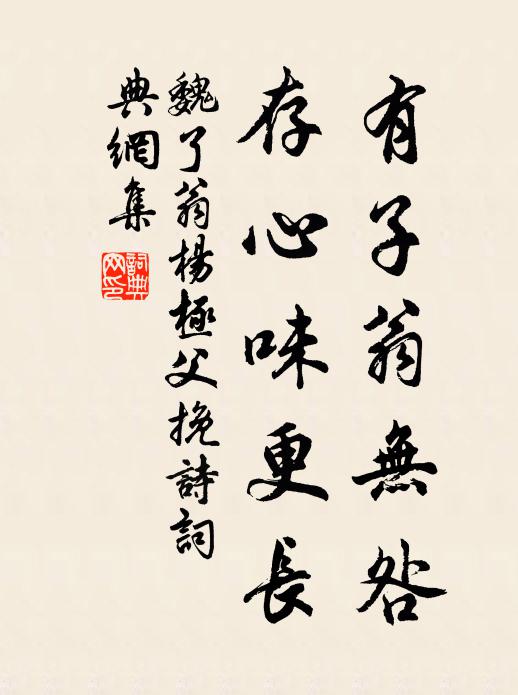 有子翁無咎
存心味更長
魏了翁楊極父挽詩詞
典網集
詞典
网印